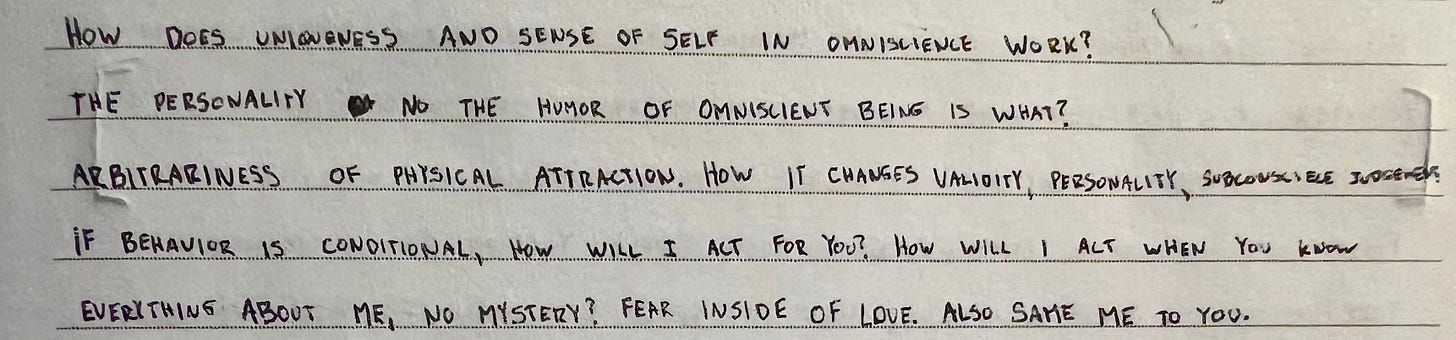 HOW DOES UNIQNENESS AND SENSE OF SELF IN OMNISCIENCE WORK?
THE PERSONALITY NO THE HUMOR OF OMNISCIENT BEING IS WHAT?
ARBITRARINESS OF PHYSICAL ATTRACTION. HOW IT CHANGES VALIDITY, PERSONALITY,
IF BEHAVIOR IS CONDITIONAL, HOW WILL I ACT FOR YOU? HOW WILL I ACT WHEN YOU KNOW
EVERYTHING ABOUT ME, NO MYSTERY? FEAR INSIDE OF LOVE. ALSO SAME ME TO YOU.